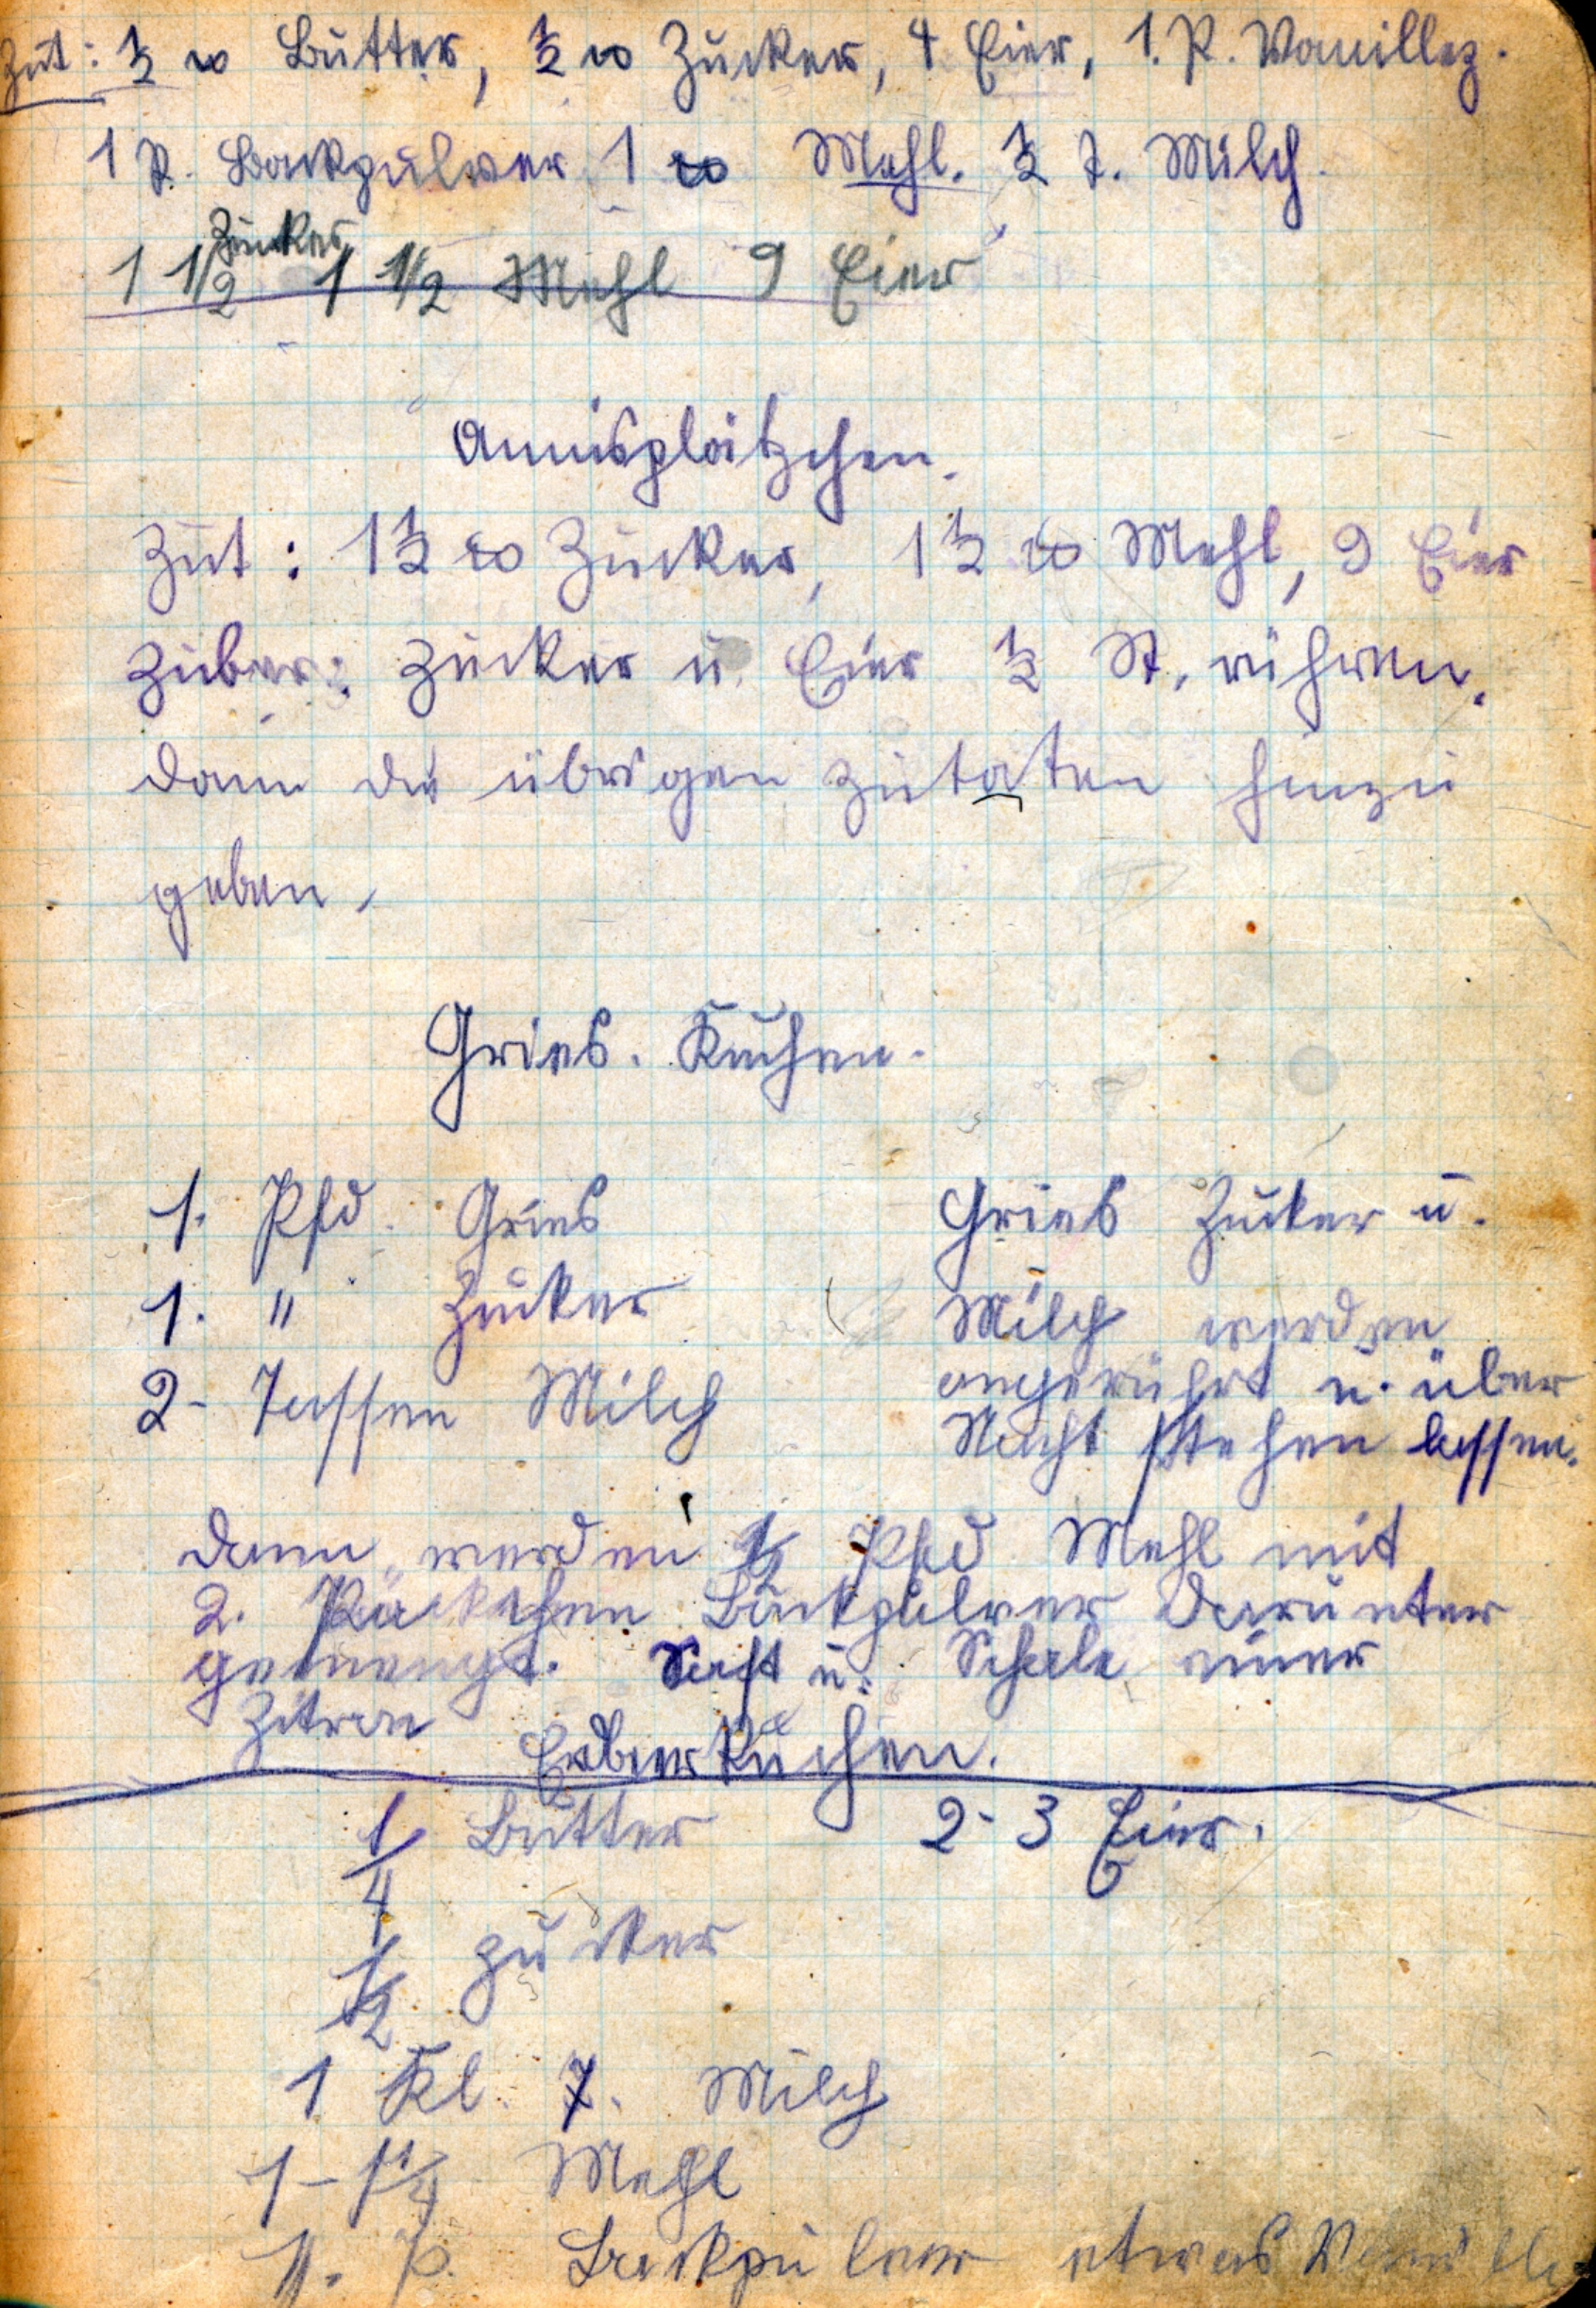 Zut: ½ ℔ Butter, ½ ℔ Zucker, 4 Eier, 1. P. Vanillez.
1 P. Backpulver 1 ℔ Mehl. ½ T. Milch.
Zucker
1 1/2 1 1/2 Mehl 9 Eier
Annisplätzchen.
Zut: 1½ ℔ Zucker, 1½ ℔ Mehl, 9 Eier
Zuber: Zucker u. Eier ½ St. rühren.
dann die übrigen Zutaten hinzu
geben.
Gries. Kuchen.
1. Pfd. Gries
1. " Zucker
2- Tassen Milch
Gries Zucker u.
Milch werden
angerührt u. über
Nacht stehen lassen.
Dann werden 1/2 Pfd Mehl mit
2. Päckchen Backpulver darunter
gemengt. Saft u. Schale einer
Zitron
Erdbeerkuchen.
1/4 Butter 2-3 Eier.
1/2 Zucker
1 Kl. T. Milch
1-1 1/4 Mehl
1. P. Backpulver etwas Vanille